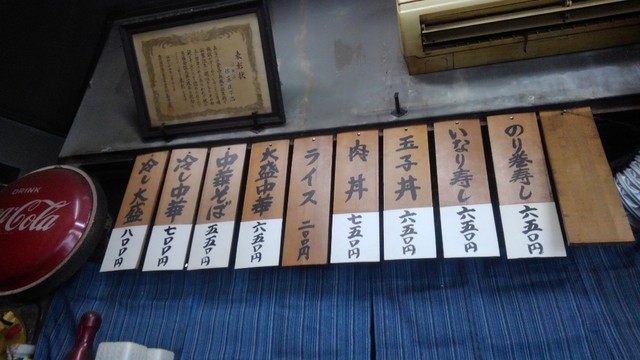 表彰状
DRINK
Coca-Cola
のり巻寿し 六五〇円
いなり寿し 六五〇円
玉子丼 六五〇円
肉丼 七五〇円
ライス 二〇〇円
大盛中華 六五〇円
中華そば 五五〇円
冷し中華 七〇〇円
冷し大盛 八〇〇円